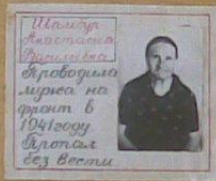 Швайбур
Анастасия
Васильевна
Проводила
мужа на
фронт в
1941 году
Пропал
без Вести